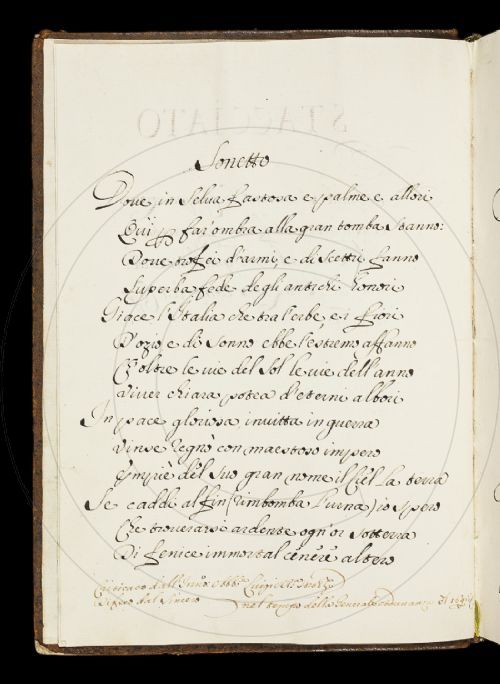 Sonetto
Doue in Selua fastosa e palme e allori
Qui p far ombra alla gran tomba Stanno:
Doue trofei d'armi, e di Scettri fanno
Superba fede degli antichi honori
Giace l'Italia che tra l'erbe e i fiori
D'ozio e di Sonno ebbe l'estremo affanno
E oltre le vie del Sol le vie dell'anno
Viver chiara potea d'eterni albori
In pace gloriosa inuitta in guerra
Vinse Regnò con maestoso impero
Empiè del Suo gran nome il Ciel la terra
Se caddè al fin (rimbomba l'urna) io spero
Che trouerassi ardente ogn'or Sotterra
Di fenice immortal cenere altero
Criticato dall'
Difeso dal Sincero nel tempo della